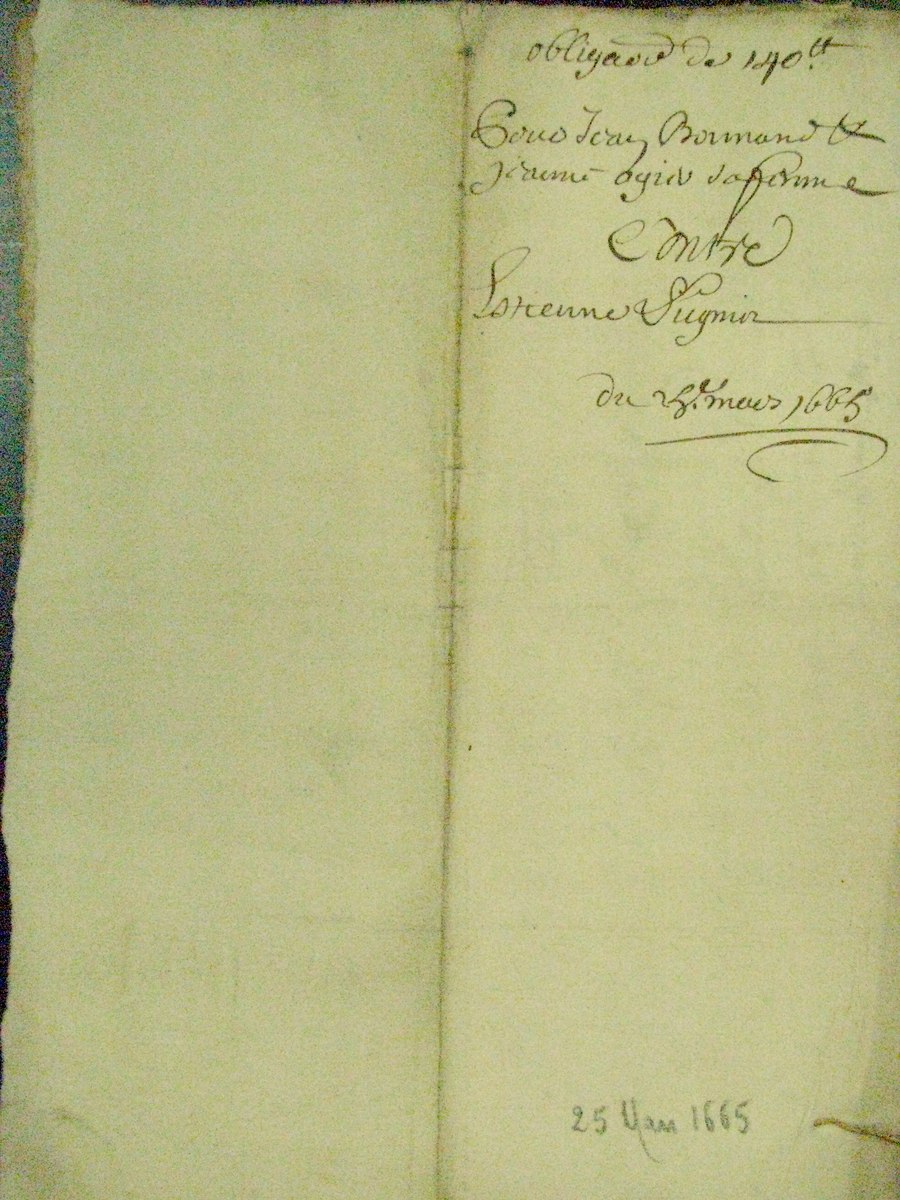 obligaõn de 140.lt
Pour Jean Bormand &
Jeanne ogier sa femme
Contre
Estienne Pugnier
du 25.e mars 1665
25 Mars 1665